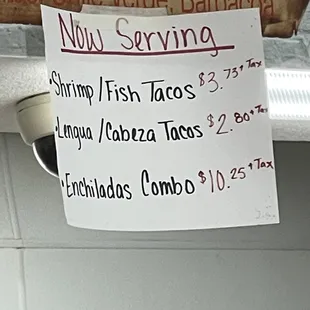 Verde, Barbacoa
Now Serving
• Shrimp / Fish Tacos $3.73 + Tax
• Lengua / Cabeza Tacos $2.80 + Tax
• Enchiladas Combo $10.25 + Tax